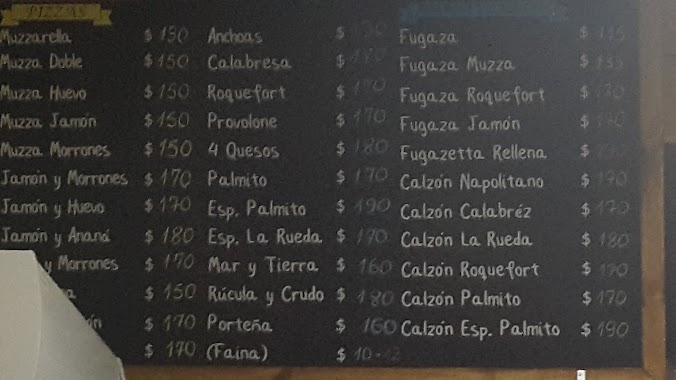 PIZZAS
Muzzarella $ 130
Muzza Doble $ 150
Muzza Huevo $ 150
Muzza Jamón $ 150
Muzza Morrones $ 150
Jamón y Morrones $ 170
Jamón y Huevo $ 170
Jamón y Ananá $ 180
y Morrones $ 170
$ 150
$ 170
$ 170
Anchoas $
Calabresa $
Roquefort $ 170
Provolone $ 170
4 Quesos $ 180
Palmito $ 170
Esp. Palmito $ 190
Esp. La Rueda $ 190
Mar y Tierra $ 160
Rúcula y Crudo $ 180
Porteña $ 160
(Faina) $ 10-12
Fugaza $
Fugaza Muzza $
Fugaza Roquefort $
Fugaza Jamón $
Fugazetta Rellena $
Calzón Napolitano $ 170
Calzón Calabréz $ 170
Calzón La Rueda $ 180
Calzón Roquefort $ 170
Calzón Palmito $ 170
Calzón Esp. Palmito $ 190